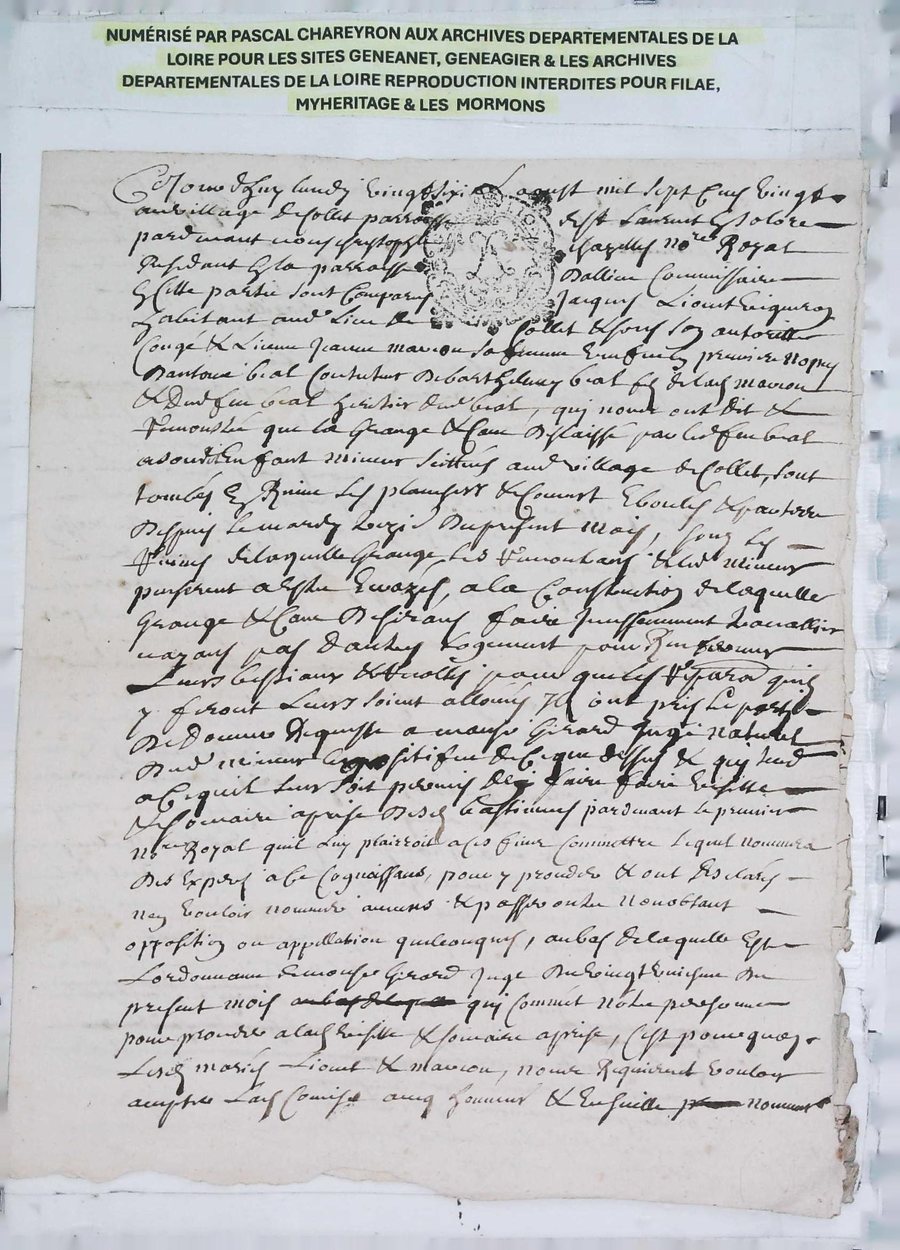 NUMÉRISÉ PAR PASCAL CHAREYRON AUX ARCHIVES DEPARTEMENTALES DE LA
LOIRE POUR LES SITES GENEANET, GENEAGIER & LES ARCHIVES
DEPARTEMENTALES DE LA LOIRE REPRODUCTION INTERDITES POUR FILAE,
MYHERITAGE & LES MORMONS
Ce Jourdhuy lundy vingt sixie aoust mil sept cens vingt
au village de Collet parroisse de St Laurent
pardevant nous christophle chazelles nore Royal
Residant en la parroisse Commissaire
en cette partie sont Comparus Jacques Liout
habitant aud Lieu de Collet & sous son autorité
Congé & Licence Jeanne marcou sa femme
Dantoine beal tutur De barthelemy beal fils de lad marcou
& Dud feu beal heritier dud beal, qui nous ont dit &
Remonstré que la Grange & Cave Delaissé par led feu beal
a sondit Enfant mineur scittués aud village de Collet, sont
tombés En Ruine Les planchers & Couvert Eboulés & par terre
Despuis le mardy Du present mois, sous les
Ruines de laquelle Grange les Remontrans & led mineur
panserent a Estre Ecrazés, a la Construction de laquelle
Grange & Cave Desirans faire Incessemment travallier
nayans pas Dautres Logement pour Renfermer
Leurs bestiaux & Recoltes pour que les Reparaons quils
y feront Leurs soient alloués Ils ont pris le party
De Donner Requeste a monsr Girard Juge naturel
Dud mineur Expositifve de Ce que dessus & qui tend
a Ce quil Leurs soit permis de faire faire Visitte
& somaire aprise Desd bastiments pardevant le premier
nore Royal quil Luy plairroit a ces fins Committre Lequel nommera
Des Expers a Ce Cognoissans, pour y proceder & ont Declarés
nen vouloir nommer aucuns & passer outre nonobtant
opposition ou appellation quelconques, au bas de laquelle Est
Lordonnance de monsr Girard Juge Du vingt Du
present mois qui Commet notre personne
pour proceder a lad Visitte & somaire aprise, C'est pourquoy
Lesd mariés Liout & marcou, nous Requierent vouloir
accepter Lad Comison avec honneur & Ensuitte nommer